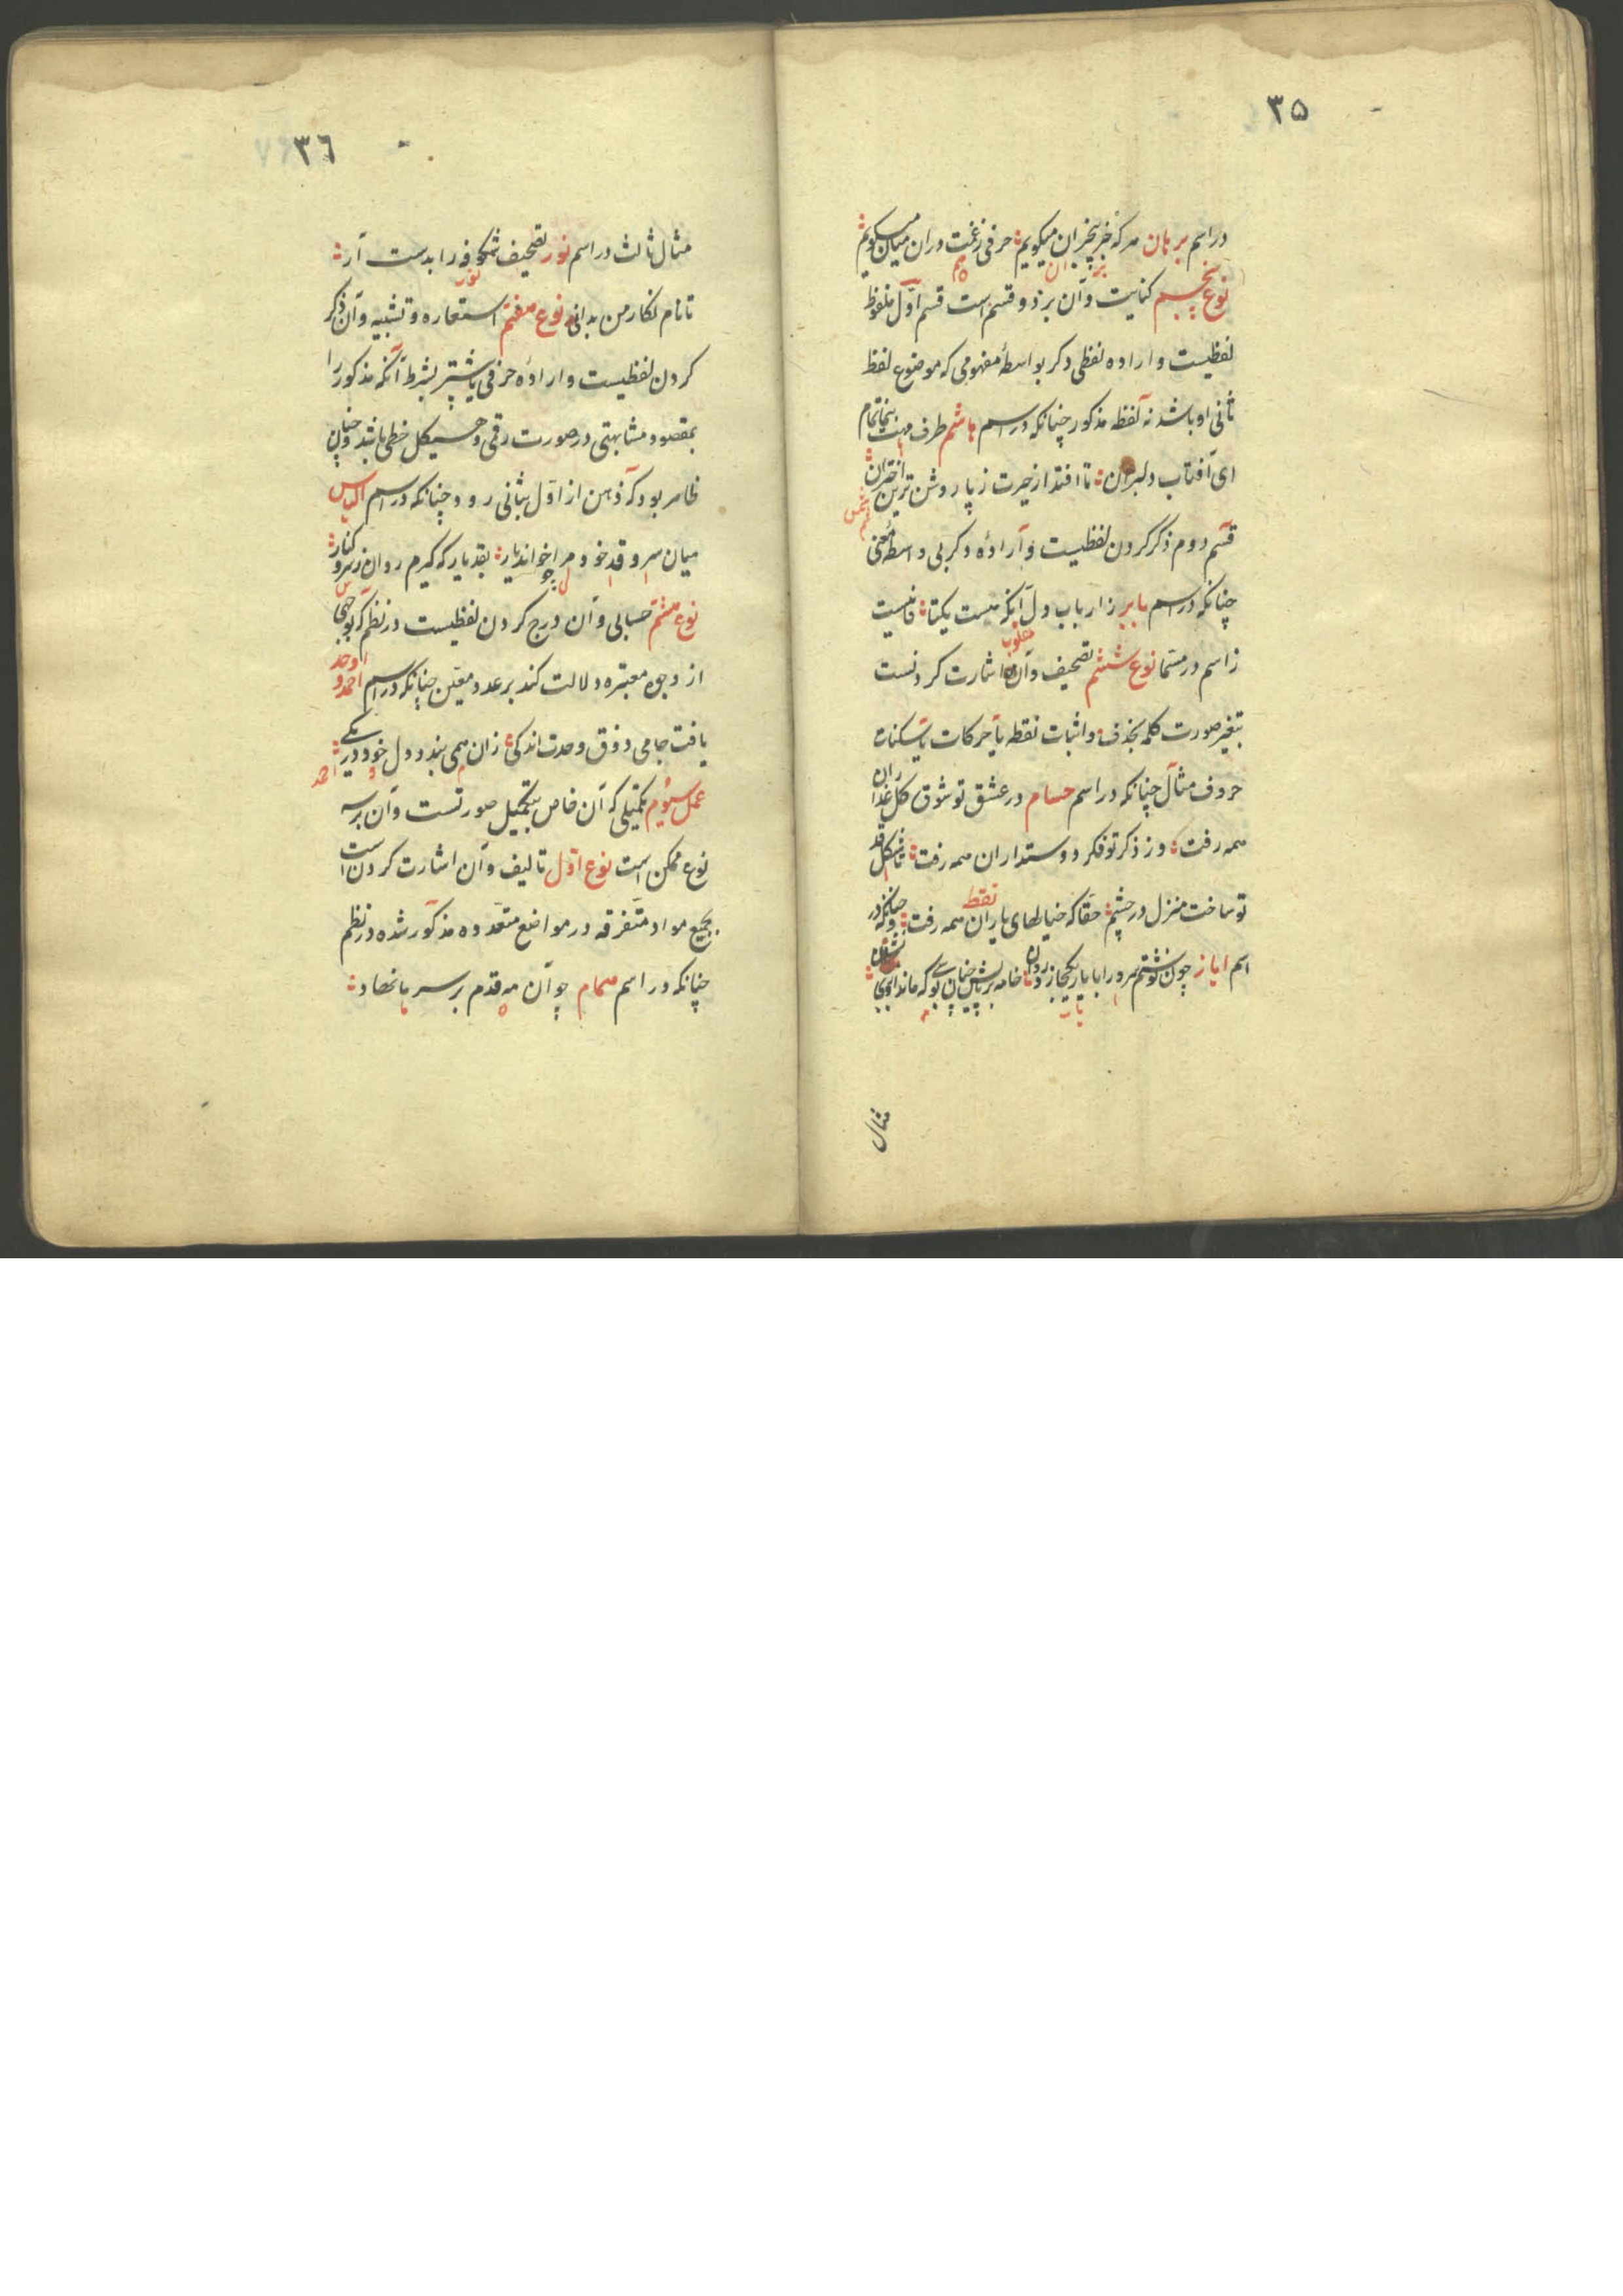 ۳۵
در اسم برهان هر که خبر بیخبران میکویم حرفی ز غمت دران میان میکویم
بر ان هم
نوع پنجم کنایت و آن بر دو قسم است قسم اول ملفوظ
لفظیست و اراده لفظی دکر بواسطهٔ مفهومی که موضوع لفظ
ثانی او باشد نه لفظ مذکور چنانکه در اسم هاشم طرف مهت بنما تمام
ای آفتاب دلبران تا افتد از حیرت ز پا روشن ترین اختران
شمس
قسم دوم ذکر کردن لفظیست و ارادهٔ دکر بی واسطهٔ معنی
چنانکه در اسم بابر ز ارباب دل آنکه هست یکتا فانیست
مقلوب
ز اسم در مسما نوع ششم تصحیف و آن اشارت کردنست
بتغیر صورت کلمه بحذف و اثبات نقطه یا حرکات یا سکنات
حروف مثال چنانکه در اسم حسام در عشق تو شوق کل عذاران
همه رفت وز ذکر تو فکر دوستداران همه رفت تا شکل قد
تو ساخت منزل در چشم حقا که خیالهای یاران همه رفت و چنانکه در
نقط
اسم ایاز چون نوشتم سرورا با یار یکجا ز خامه بر پایش چنان که ماند
یار
مثال
۳٦
مثال ثالث در اسم نور تصحیف شکوفه را بدست آر
نور
تا نام نکار من بدانی نوع هفتم استعاره و تشبیه و آن ذکر
کردن لفظیست و ارادهٔ حرفی یا بیشتر بشرط آنکه مذکور را
بمقصود مشابهتی در صورت رقمی و هیکل خطی باشد و چنان
ظاهر بود که ذهن از اول بثانی رود چنانکه در اسم الیاس
میان سرو قد خود مرا خواند یار بقد یار که کیرم روان ز سرو کنار
نوع هشتم حسابی و آن درج کردن لفظیست در نظم که بوجهی
از وجوه معتبره دلالت کند بر عدد معین چنانکه در اسم احمد و اوحد
یافت جامی ذوق وحدت اندکی زان همی بندد دل خود در یکی
احد
عمل سیوم تکمیلی که آن خاص بتکمیل صورتست و آن بر سه
نوع ممکن است نوع اول تالیف و آن اشارت کردن است
بجمع مواد متفرقه در مواضع متعدده مذکور شده در نظم
چنانکه در اسم همام چو آن مه قدم بر سر ما نهاد
ه ما